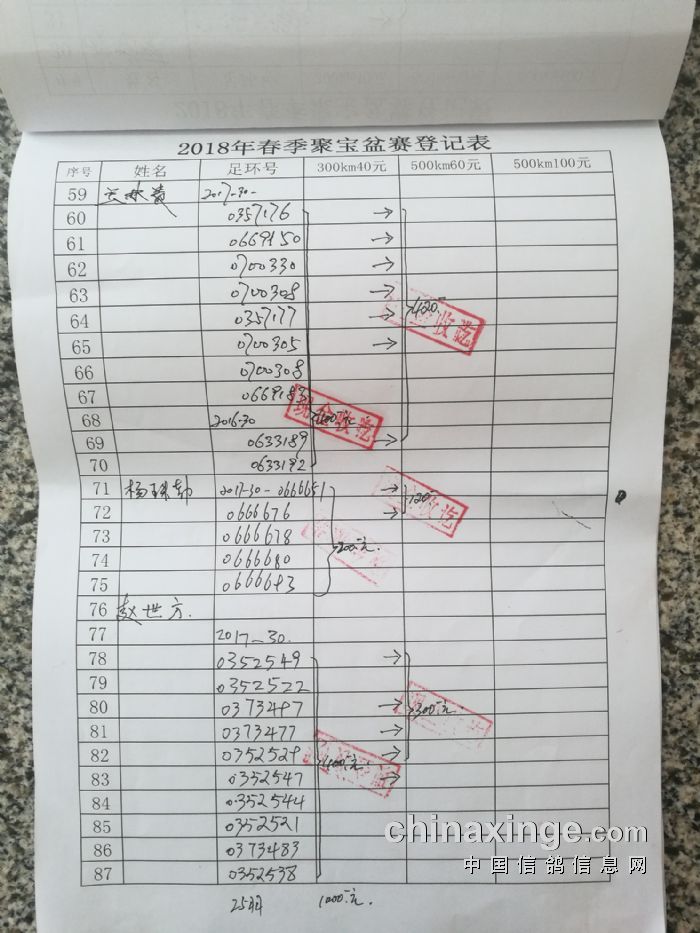 2018年春季聚宝盆赛登记表
序号 姓名 足环号 300km40元 500km60元 500km100元
59 2017-30-
60 0357176 →
61 0669150 →
62 0700330 →
63 0700308 →
64 0357177 → 420-
65 0700305 →
66 0700308
67 0669183
68 2016-30 400元
69 0633189 →
70 0633192
71 2017-30-0666651 →
72 0666676 → 120-
73 0666678
74 0666680 200元
75 0666643
76 赵世方.
77 2017-30.
78 0352549 →
79 0352522
80 0373497 → 300元
81 0373477 →
82 0352529 → 400元
83 0352547 →
84 0352544
85 0352521
86 0373483
87 0352538
25羽 1000元.
现金收讫
收讫
收讫
chinaxinge.com
中国信鸽信息网